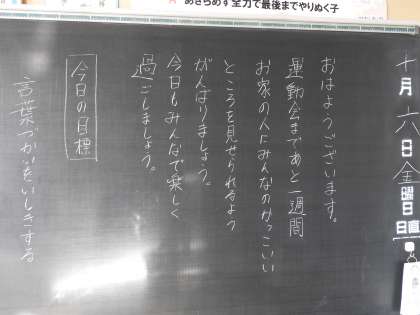 あきらめず全力で最後までやりぬく子
十月六日金曜日
日直
おはようございます。
運動会まであと一週間
お家の人にみんなのかっこいい
ところを見せられるよう
がんばりましょう。
今日もみんなで楽しく
過ごしましょう。
今日の目標
言葉づかいをいしきする